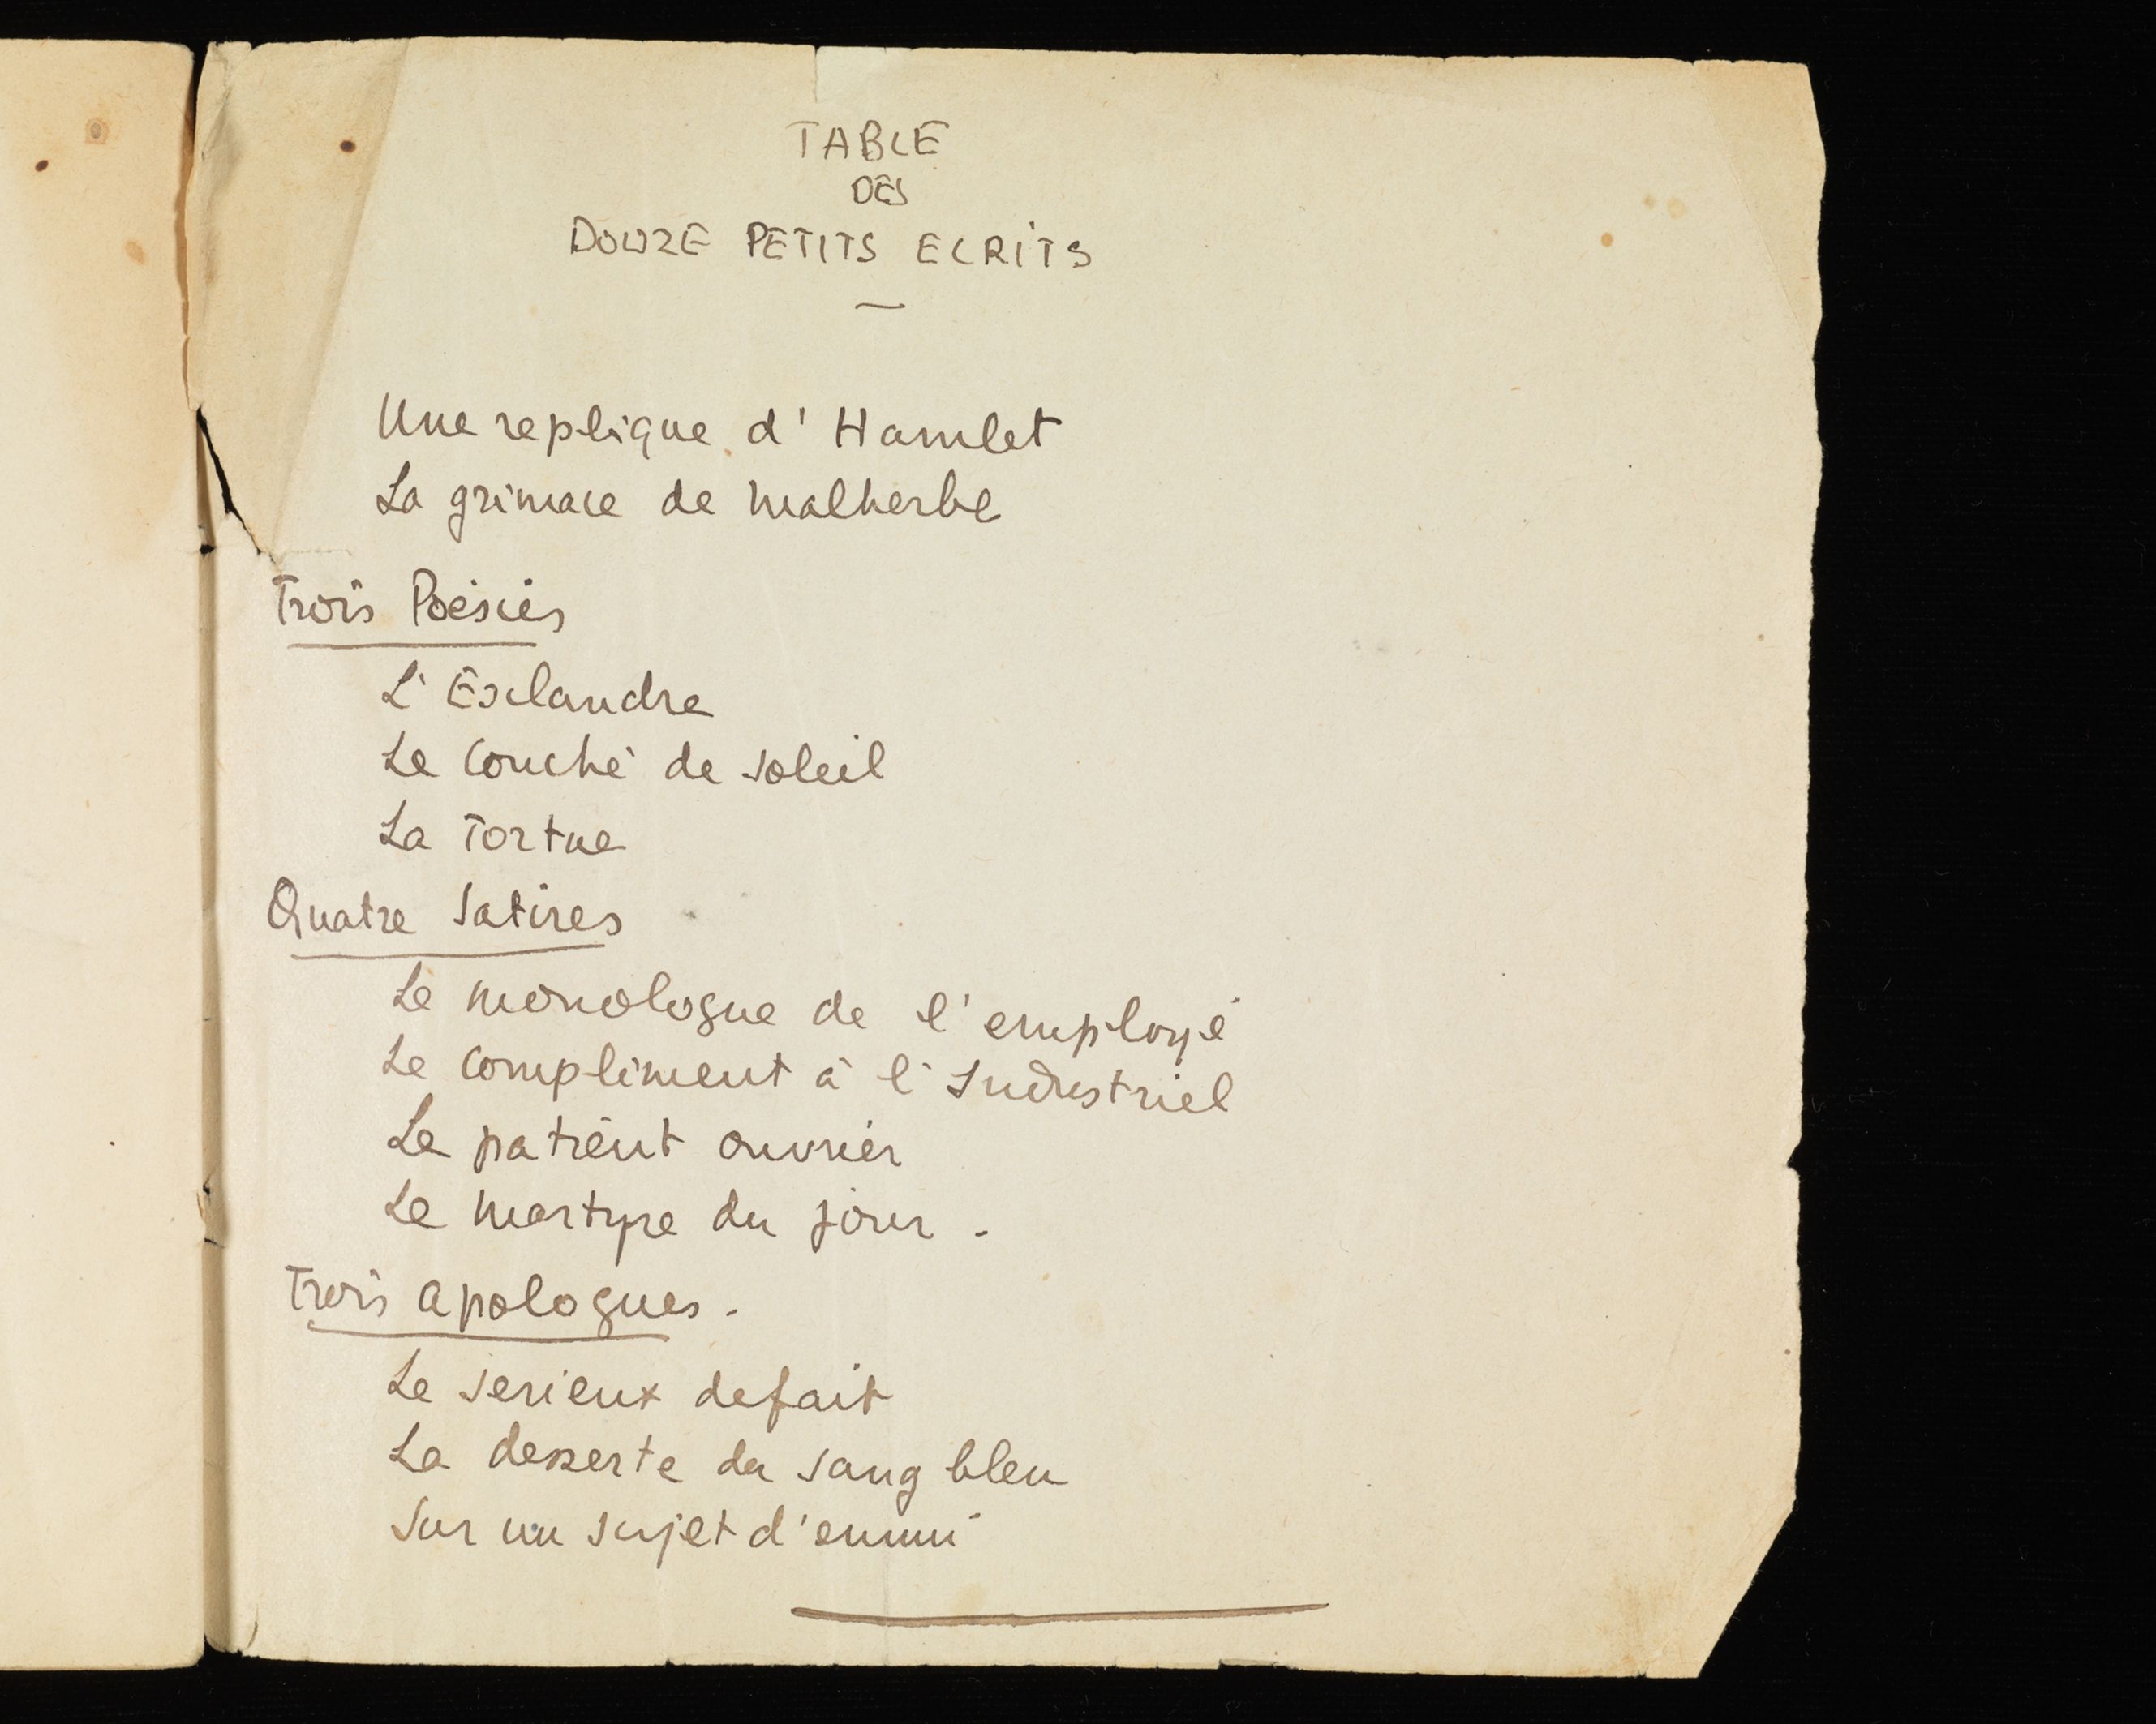 TABLE
DES
DOUZE PETITS ECRITS
Une replique d'Hamlet
La grimace de Malherbe
Trois Poésies
L'Esclandre
Le Couché de soleil
La Tortue
Quatre Satires
Le monologue de l'employé
Le Compliment à l'Industriel
Le patient ouvrier
Le Martyre du jour.
Trois apologues.
Le serieux defait
La desserte du sang bleu
Sur un sujet d'ennui